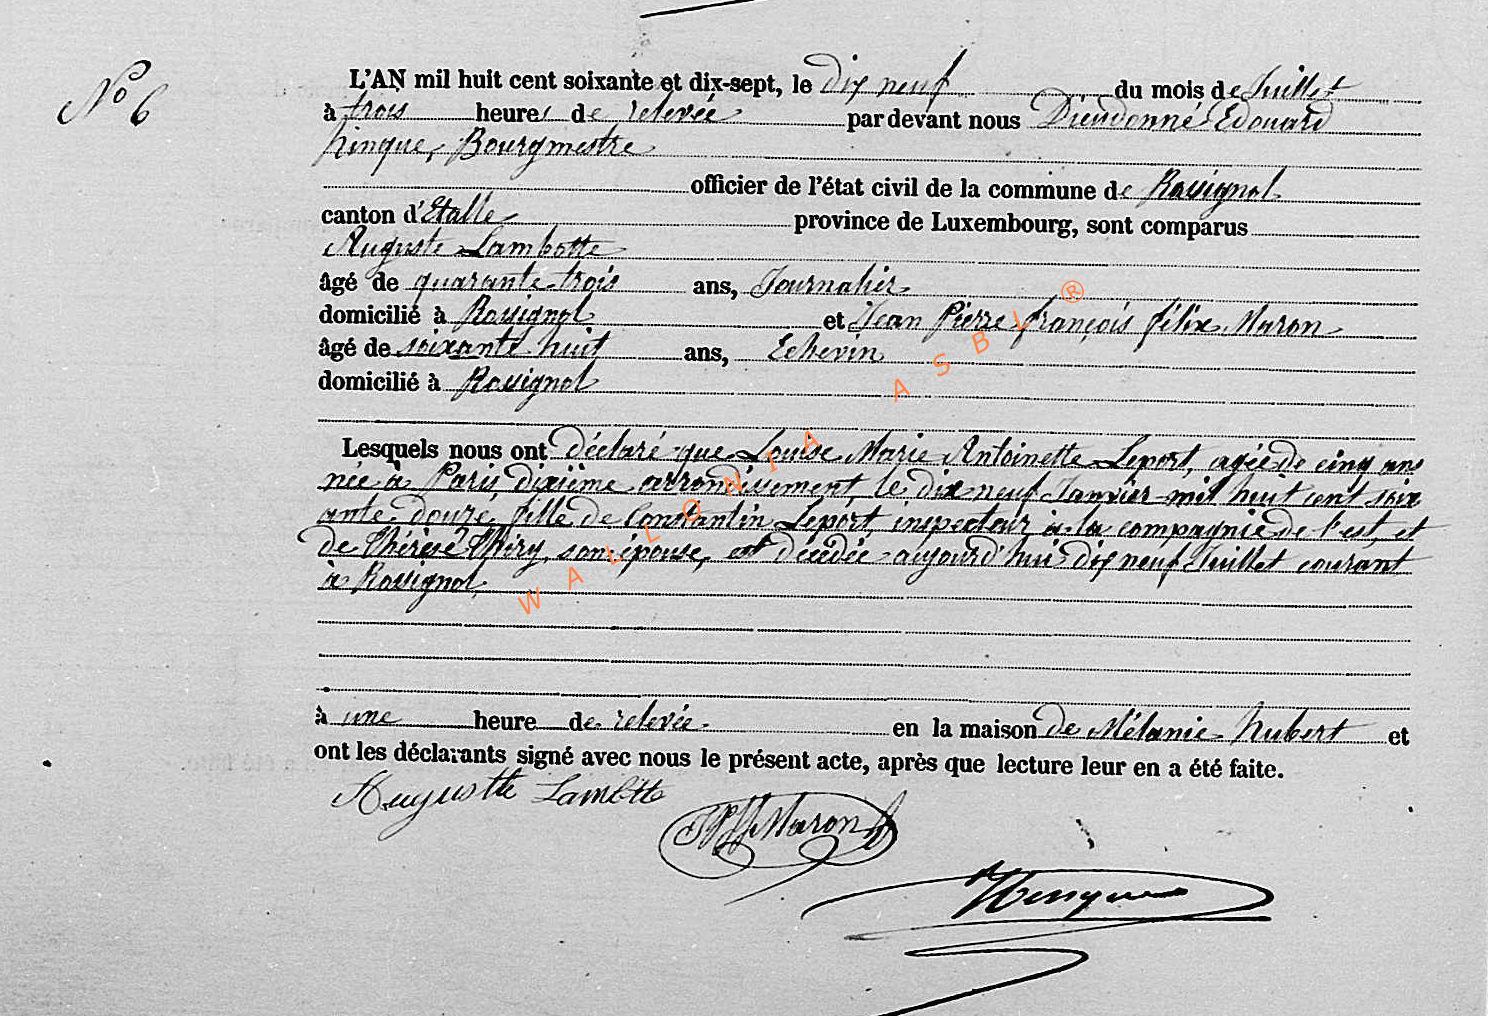 N° 6
L'AN mil huit cent soixante et dix-sept, le dix neuf du mois de Juillet
à trois heures de relevée par devant nous Dieudonné Edouard
hinque, Bourgmestre
officier de l'état civil de la commune de Rossignol
canton d'Etalle province de Luxembourg, sont comparus
Auguste Lambotte
âgé de quarante trois ans, Journalier
domicilié à Rossignol et Jean Pierre françois félix Maron
âgé de soixante huit ans, Echevin
domicilié à Rossignol
Lesquels nous ont déclaré que Louise Marie Antoinette Leport, agée de cinq ans
née à Paris, dixième arrondissement, le dix neuf Janvier mil huit cent soix
ante douze, fille de Constantin Leport, inspecteur à la compagnie de l'est, et
de Thérèse Thiry, son épouse, est décédée aujourd'hui dix neuf Juillet courant
à Rossignol
à une heure de relevée en la maison de Mélanie hubert et
ont les déclarants signé avec nous le présent acte, après que lecture leur en a été faite.
Auguste Lambotte
JPff Maron
Hinque
WALLONIA ASBL ®